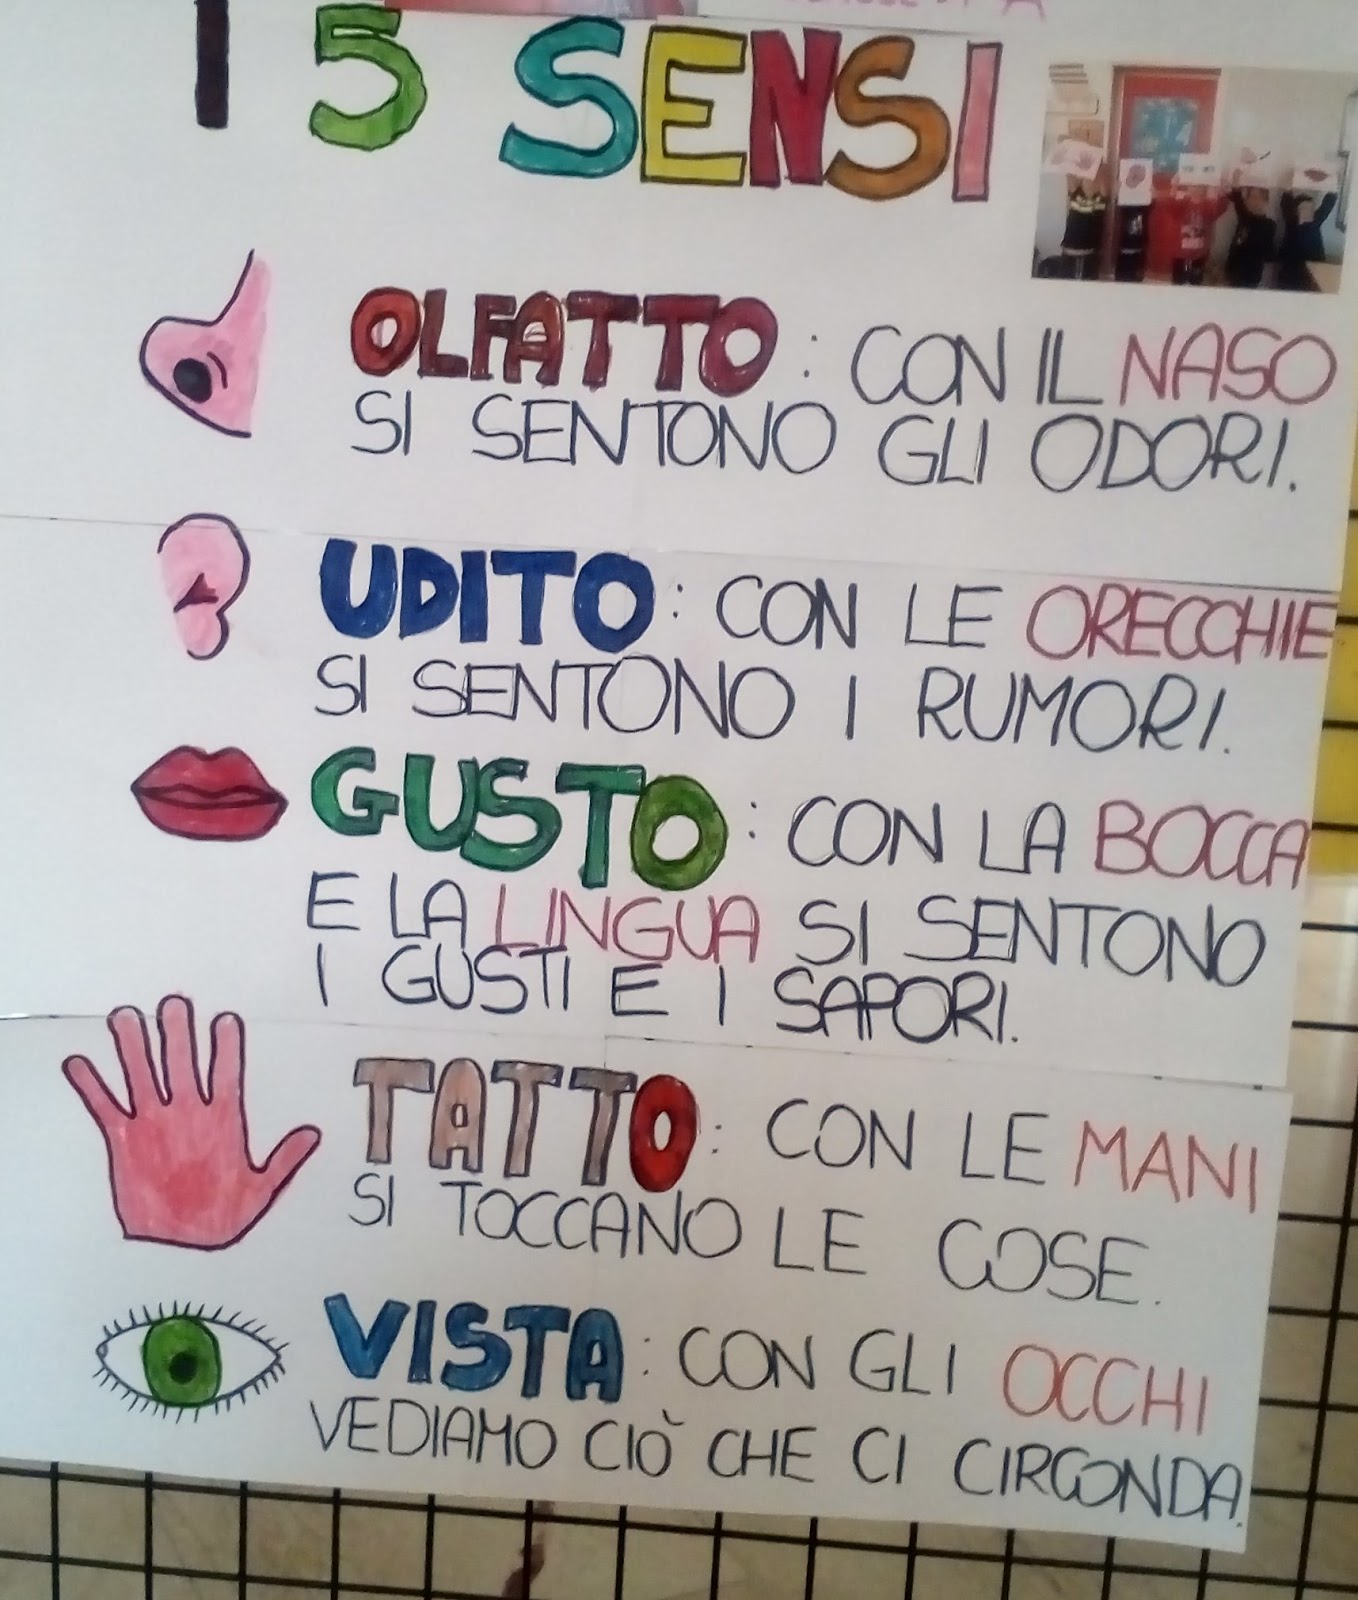 I 5 SENSI
OLFATTO: CON IL NASO
SI SENTONO GLI ODORI.
UDITO: CON LE ORECCHIE
SI SENTONO I RUMORI.
GUSTO: CON LA BOCCA
E LA LINGUA SI SENTONO
I GUSTI E I SAPORI.
TATTO: CON LE MANI
SI TOCCANO LE COSE.
VISTA: CON GLI OCCHI
VEDIAMO CIÒ CHE CI CIRCONDA.